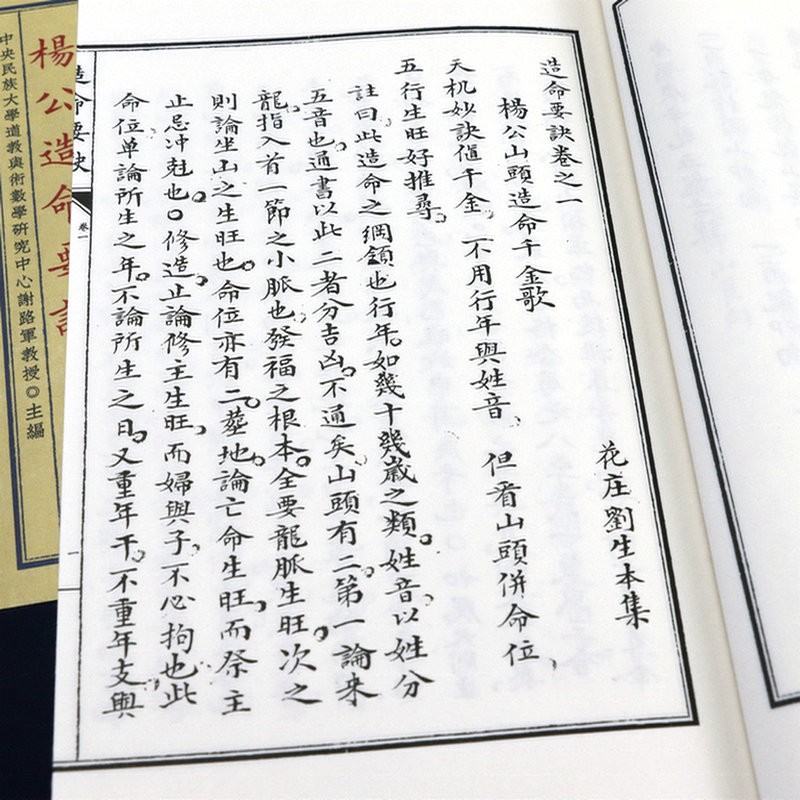 造命要訣卷之一
花庄劉生本集
楊公山頭造命千金歌
天机妙訣值千金，不用行年與姓音，但看山頭併命位，
五行生旺好推尋。
註曰此造命之綱領也行年。如幾十幾歲之類。姓音以姓分
五音也。通書以此二者分吉凶。不通矣。山頭有二。第一論來
龍。指入首一節之小脈也。發福之根本。全要龍脈生旺。次之
則論坐山之生旺也。命位亦有二。葬地論亡命生旺。而祭主
止忌冲尅也。○修造。止論修主生旺。而婦與子。不必拘也。此
命位单論所生之年。不論所生之日。又重年干。不重年支。與
造命要訣
卷一
一
楊公造命要訣
中央民族大學道教與術數學研究中心謝路軍教授◎主編